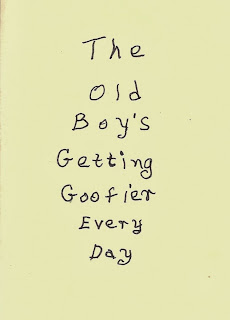 The
Old
Boy's
Getting
Goofier
Every
Day